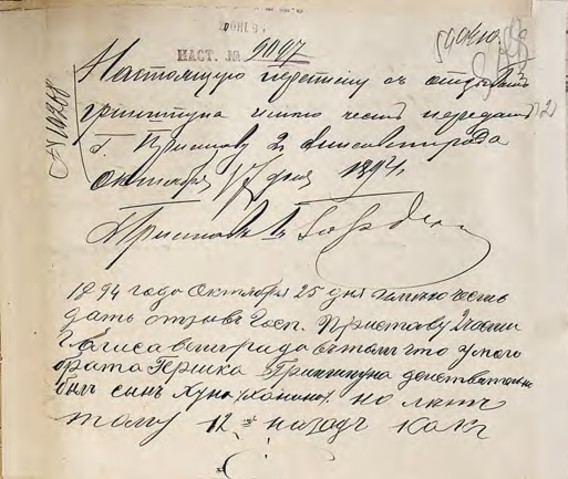 НАСТ. № 9097
Настоящую переписку съ отзывомъ
Гринштуна имѣю честь передать
Г. Приставу 2 ч Елисаветграда
Октября 17 дня 1894 г.
Приставъ
№ 10288
1894 года Октября 25 дня имѣю честь
дать отзывъ Госп. Приставу 2 части
Г Елисаветграда въ томъ что у моего
брата Гершка действительно
былъ сынъ Хуна (Ханина) но летъ
тому 12 назадъ какъ